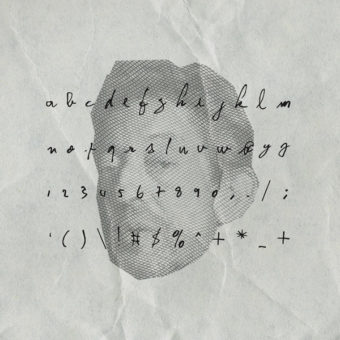 a b c d e f g h i j k l m
n o p q r s t u v w x y z
1 2 3 4 5 6 7 8 9 0 , . / ;
' ( ) \ ! # $ % ^ + * _ +